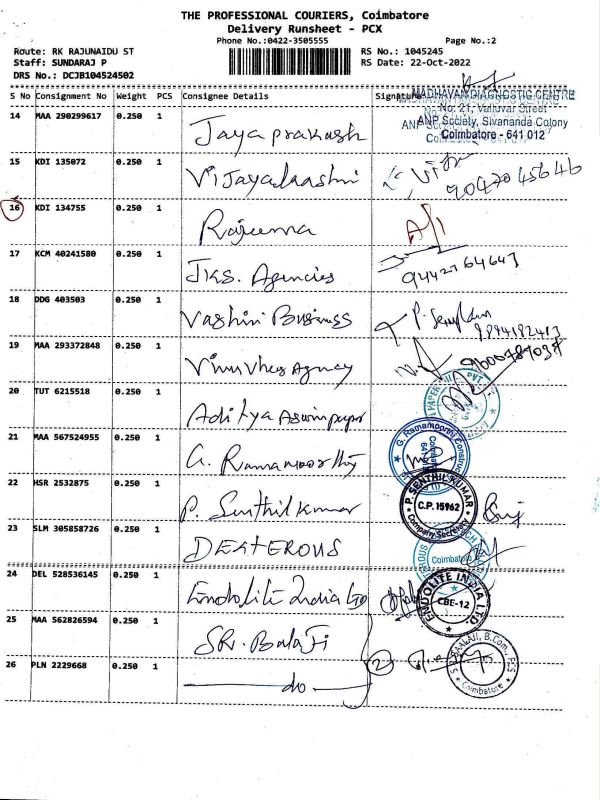 THE PROFESSIONAL COURIERS, Coimbatore
Delivery Runsheet - PCX
Phone No.:0422-3505555
Page No.:2
Route: RK RAJUNAIDU ST
RS No.: 1045245
Staff: SUNDARAJ P
RS Date: 22-Oct-2022
DRS No.: DCJB104524502
S No Consignment No Weight PCS Consignee Details Signature
MADHAVAN DIAGNOSTIC CENTRE
No: 21, Valluvar Street
ANP Society, Sivananda Colony
Coimbatore - 641 012
14 MAA 290299617 0.250 1 Jaya prakash
15 KDI 135072 0.250 1 Vijayalaashni
9047045646
16 KDI 134755 0.250 1 Rajeema
17 KCM 40241580 0.250 1 JKS. Agencies
18 DDG 403503 0.250 1 Vashini Business
8894182413
19 MAA 293372848 0.250 1
20 TUT 6215518 0.250 1 Aditya
21 MAA 567524955 0.250 1 G. Ramamoorthy
G. Ramamoorthi
22 HSR 2532875 0.250 1 P. Senthil kumar
P. SENTHIL KUMAR
C.P. 15962
Company Secretary
23 SLM 305858726 0.250 1 DEXTEROUS
Coimbatore
24 DEL 528536145 0.250 1 Endolite India Ltd
ENDOLITE INDIA LTD
CBE-12
25 MAA 562826594 0.250 1 SR. Balaji
26 PLN 2229668 0.250 1 do
2
B.Com., FCS
Coimbatore